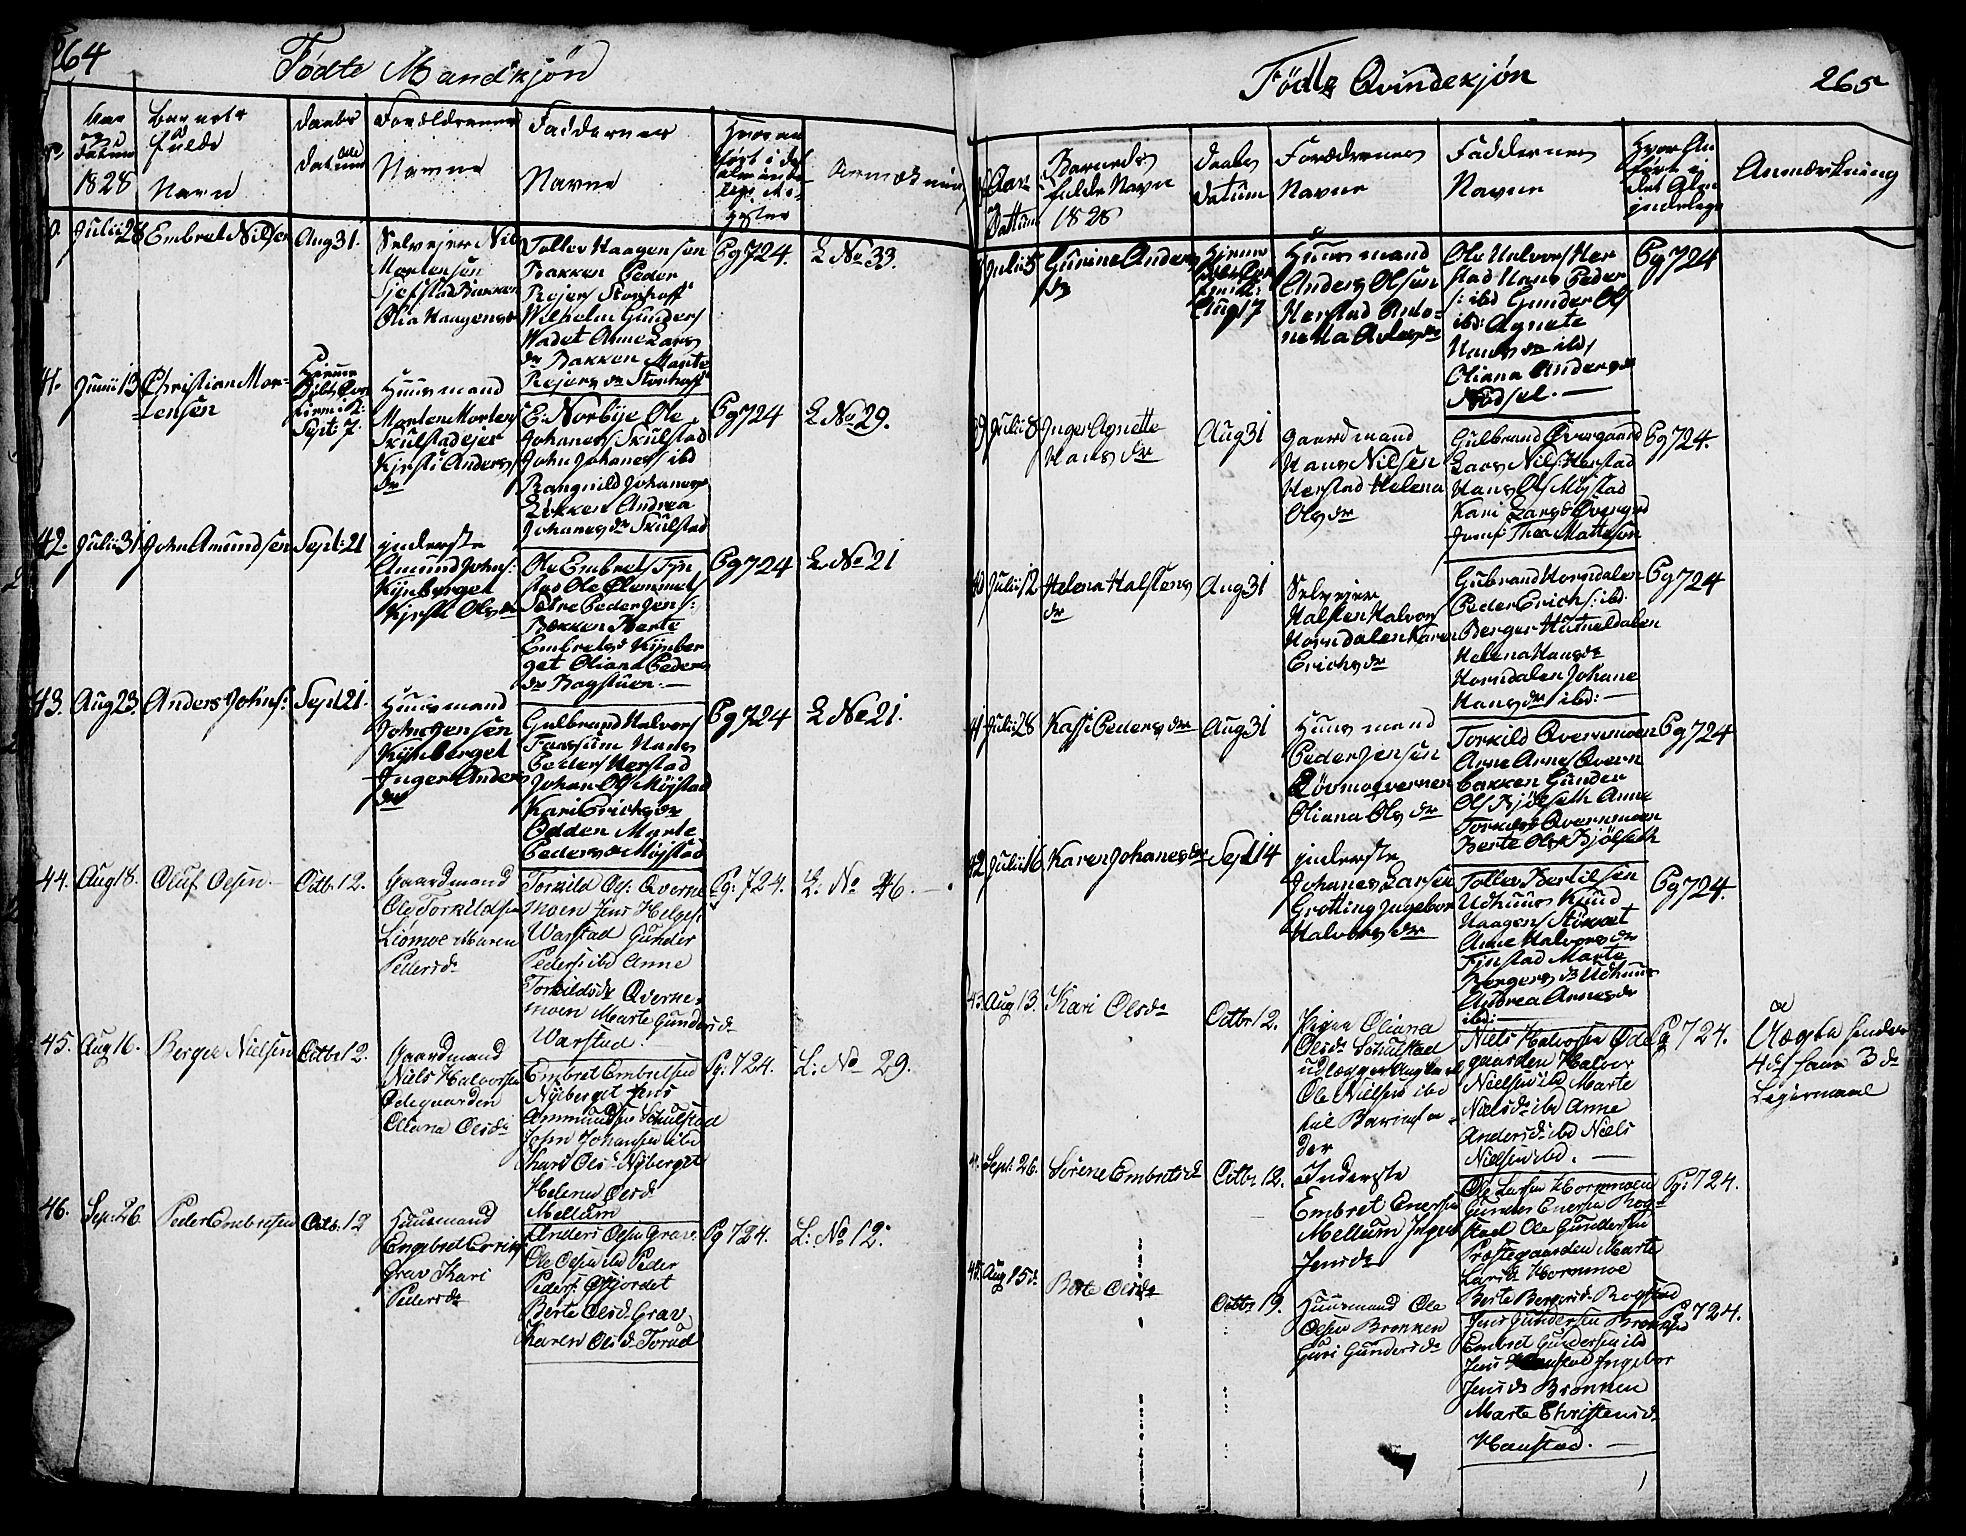 264
Fødte Mandkjøn
Aar
og
Datum
1828
Barnets
fulde
Navn
Daabs
Datum
Forældrenes
Navne
Faddernes
Navne
Hvor an
ført i det
alminde
lige
Anmærkning
Julii 28 Embret Nilsen Aug 31.
Selvejer Nils
Mortensen
Sjefstad Bakken
Olia Haagensdr
Tollev Haagensen
Bakken Peder
Rejers Storhoff
Wilhelm Gunders
Wadet Anne Lars
dr Bakken Marte
Rejers dr Storhoff
Pg 724. L No 33.
41. Junii 13 Christian Mor-
tensen
Hjemme
Døbt Con
firm: i K:
Sept: 7.
Huusmand
Morten Mortens
Skulstadejer
Kjersti Anders
dr
E: Norbye Ole
Johanes Skulstad
John Johanes ibd
Rangnild Johanes
Løkken Andrea
Johanes dr Skulstad
Pg 724 L No 29.
42. Julii 31 John Amundsen Sept: 21
jnderste
Amund Johns:
Kynberget
Kjersti Ols dr
Ole Embrets Tyn
stad Ole Clemmets
Sætre Peder Jens:
Bækken Berte
Embretsd Kynber
get Oliana Peders
dr Bagstuen. —
Pg 724 L No 21
43. Aug 23. Anders Johns: Sept 21.
Huusmand
John Jensen
Kynberget
Inger Anders
dr
Gulbrand Halvors
Faassum Hans
Peders Herstad
Johan Ols Møjstad
Kari Erichsdr
Odden Marte
Pedersdr Møjstad
Pg 724 L No 21.
44. Aug 18. Oluf Olsen. Octb: 12.
Gaardmand
Ole Torkildsen
Liømoe Maren
Pedersdr
Torkild Ols: Qverne
moen Jens Helges:
Warstad Gunder
Peders: ibd Anne
Torkildsdr Qverne-
moen Marte Gundersdr
Warstad. —
Pg: 724. L: No 46.
45. Aug 16. Berger Nielsen Octbr 12.
Gaardmand
Niels Halvorsen
Ødegaarden
Oliana Olsdr
Embret Embretsen
Nyberget Jens
Ammundsen Schulstad
John Johansen ibd
Kari Olsd: Nyberget
Helene Olsd:
Mellum
Pg: 724. L: No 29.
46. Sept 26. Peder Embretsen Octb: 12
Huusmand
Engebret Erichs:
Grav Kari
Pedersdr
Anders Olsen Grav.
Ole Olsen ibd Peder
Peders: Gfjordet
Berte Olsd: Grav
Karen Olsd: Torud
Pg 724. L: No 12.
Fødte Qvindekjøn
265
Aar
og
Datum
Barnets
fulde Navn
1828
Daabs
Datum
Forældrenes
Navne
Faddernes
Navne
Hvor An
ført i
det Alm
indelige
Anmærkning
Julii 5 Gurine Anders
dr
Hjemme
Aug 17
Huusmand
Anders Olsen
Herstad Anto-
netta Andersdr
Ole Halvors Her
stad Hans Peder
s: ibd Gunder Ols
ibd: Agnete
Hans dr ibd,
Oliana Andersdr
Nødsel. —
Pg 724
39 Julii 8 Inger Agnette
Hans dr
Aug 31
gaardmand
Hans Nilsen
Herstad Helena
Ols dr
Gulbrand Øvergaard
Lars Nils: Herstad
Hans Ols Møjstad
Kari Larsd Øvergrd
Jomf: Thea Mattison
Pg 724.
40 Julii 12 Helena Halstens
dr
Aug 31
Selvejer
Halsten Halvors
Horndalen Karen
Erichsdr
Gubrand Horndalen
Peder Erichs: ibd.
Berger Humeldalen
Helena Hansdr
Horndalen Johane
Hansdr ibd: —
Pg 724
41 Julii 28 Kassi Pedersdr Aug 31
Huusmand
Peder Jensen
Løvmoevernen
Oliana Ols dr
Torkild Qvernmoen
Arne Arnes Qvern
bakken Gunder
Ols Bjølseth Anne
Torkilds Qvernmoen
Berte Olsd Bjølseth
Pg 724
42 Julii 16. Karen Johanesdr Sept 14
jnderste
Johanes Larsen
Grotting Ingebor
Halvors dr
Tollev Bertilsen
Udhuus Knud
Haagens Størvet
Anne Halvorsdr
Tynstad Marte
Bergersdr Udhuus
Andrea Arnesdr
ibd: —
Pg 724.
43. Aug 13. Kari Olsdr Octbr 12.
Pigen Oliana
Olsdr Schulstad
udlægger Ungkarl
Ole Nielsen ibd
til Barnefa-
der
Niels Halvorsen Øde
gaarden Halvor
Nielsen ibd Marte
Nielsdr ibd Anne
Andersdr ibd Niels
Nielsen ibd. —
Pg 724.
Uægte hendes
4de hans 3de
Leiermaal
Sept: 26. Sørene Embretsdr Octbr. 12.
Inderste
Embret Enersen
Mellum Ingeb
Jensdr
Ole Larsen Hornmoen
Gunder Enersen Rog-
stad Ole Gundersen
Præstegaarden Marte
Larsdr Hornmoe
Berte Bergersdr Rogstad
Pg: 724.
45. Aug 15de Berte Olsdr Octbr. 19.
Huusmand Ole
Olsen Brænnen
Guri Gundersdr
Jens Gundersen Brænnen
Embret Gundersen ibd
Jens Haustad Ingebor
Jensdr Brænnen
Marte Christensdr
Haustad. —
Pg 724.